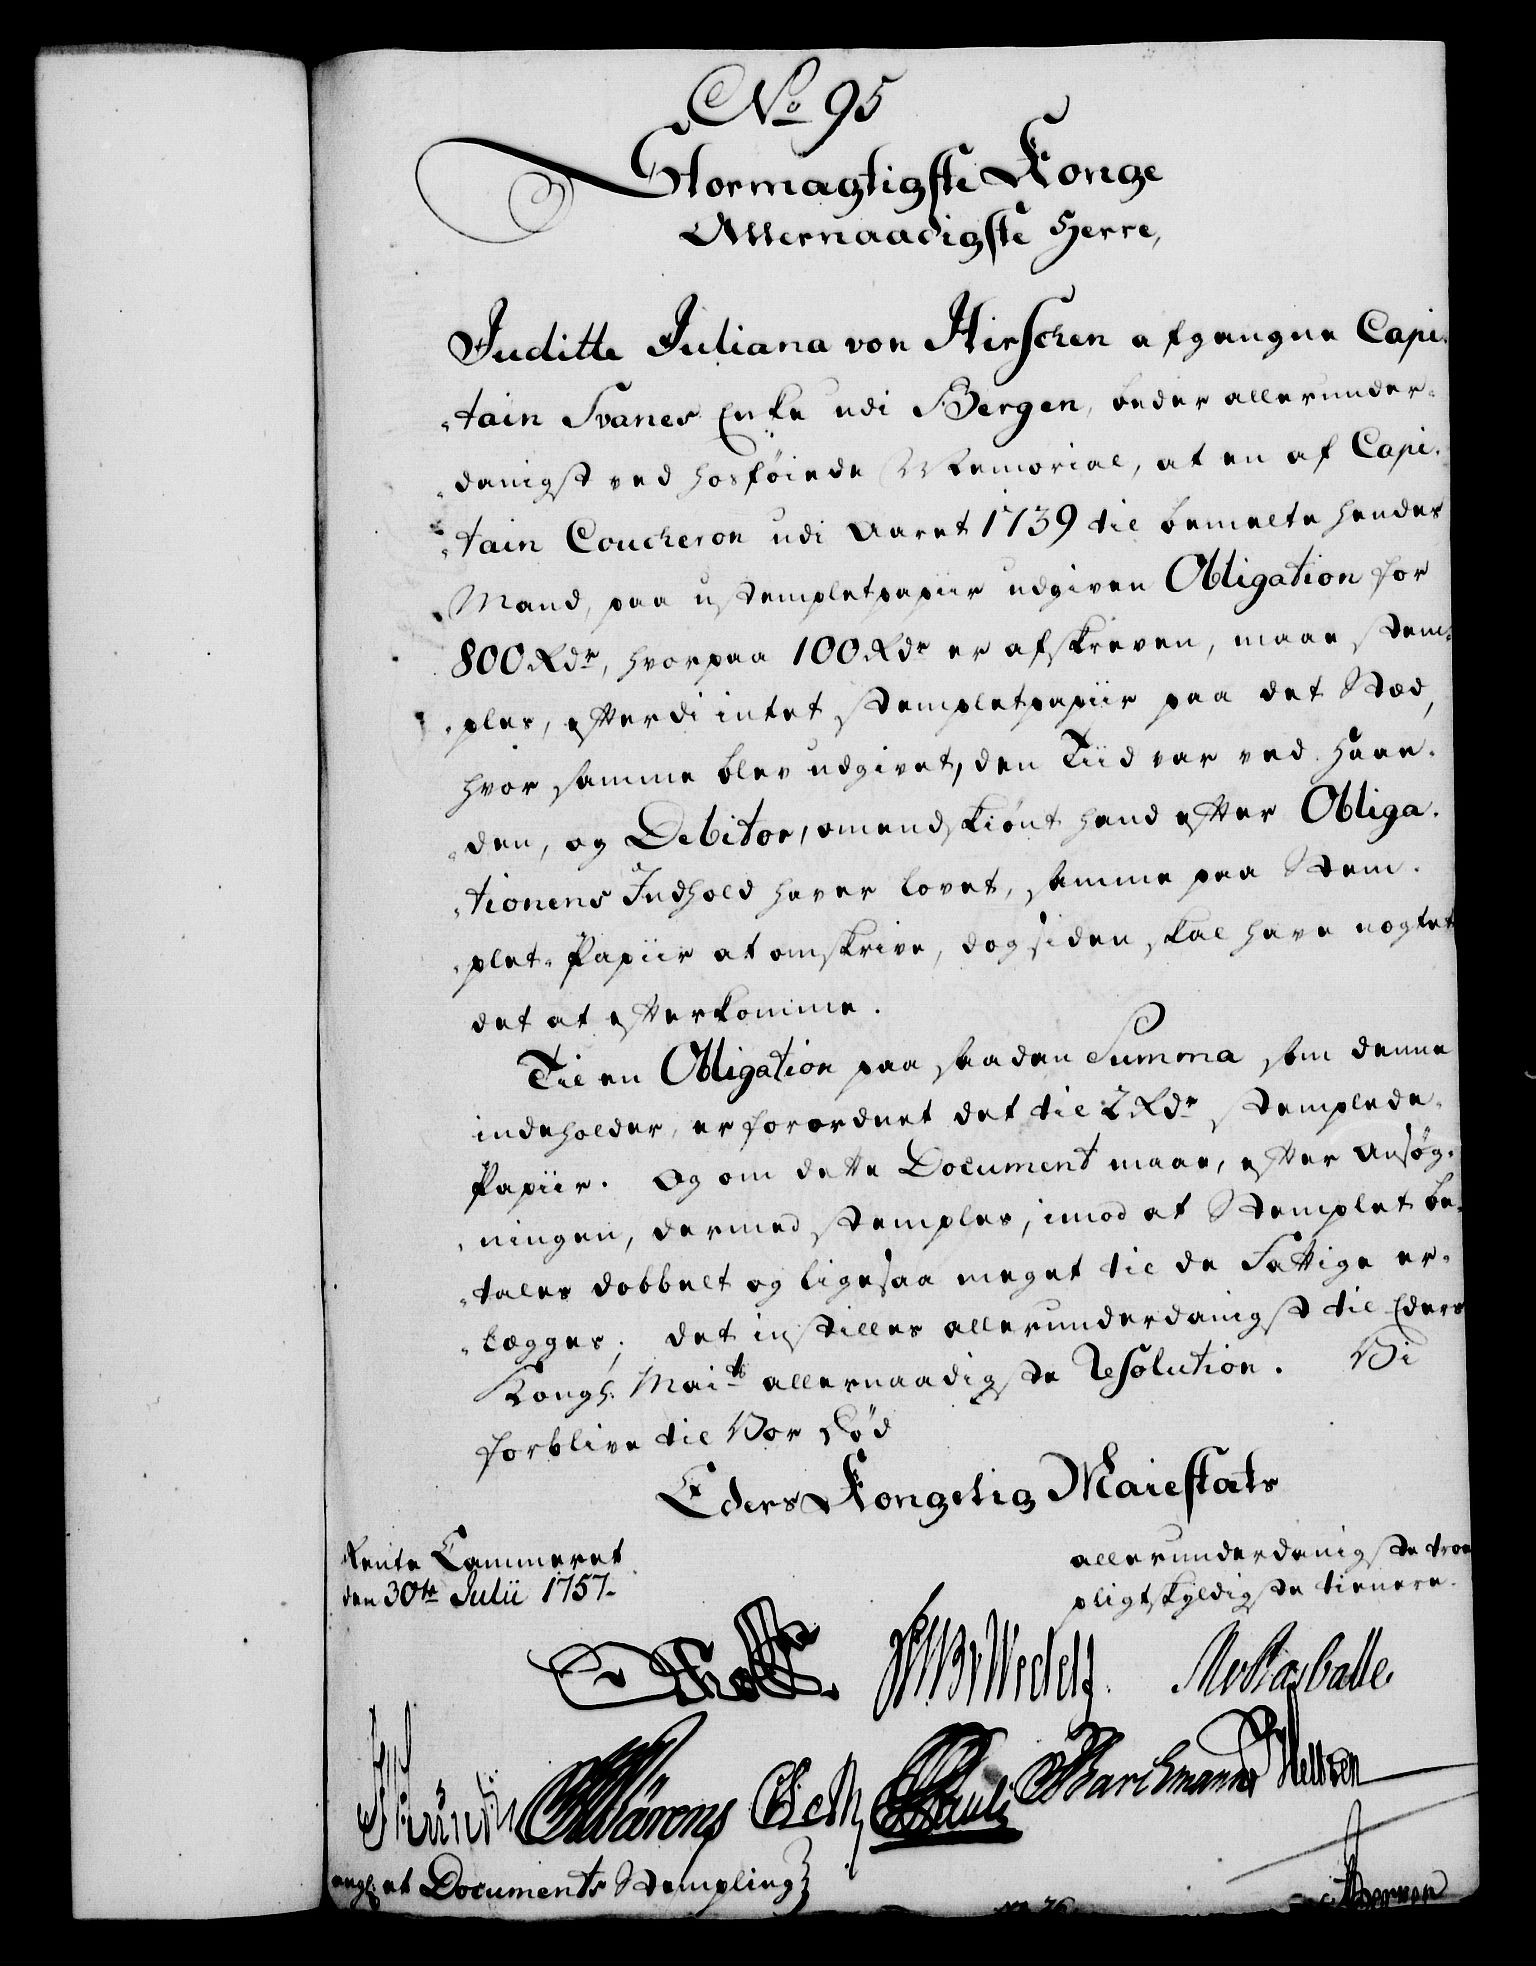 No 95
Stormagtigste Konge
Allernaadigste Herre,
Juditte Juliana von Hirschen afgangne Capi-
-tain Svanes Enke udi Bergen, beder allerunder-
-danigst ved hosføiede Memorial, at en af Capi-
-tain Coucheron udi Aaret 1739 til bemelte hendes
Mand, paa ustempletpapiir udgiven Obligation for
800 Rdr, hvorpaa 100 Rdr er afskreven, maae stem-
-ples, efterdi intet stempletpapiir paa det Stæd,
hvor samme blev udgivet, den Tiid var ved Haan-
-den, og Debitor, omendskiønt hand efter Obliga-
-tionens Indhold haver lovet, samme paa Stem-
-plet-Papiir at omskrive, dog siden skal have nægtet
det at efterkomme.
Til en Obligation paa saadan Summa som denne
indeholder, er forordnet det til 2 Rdr stemplede
Papiir. Og om dette Document maae, efter Ansøg-
-ningen, dermed stemples, imod at Stemplet be-
-tales dobbelt og ligesaa meget til de Fattige er-
-lægges; det instilles allerunderdanigst til Eders
Kongl. Maits allernaadigste Resolution. Vi
forblive til Vor Død
Eders Kongelig Maiestats
Rente Cammeret
den 30te Julii 1757.
allerunderdanigste troe
pligtskyldigste tienere.
Holst
Wedels
Barchmann
angl. et Documents Stempling